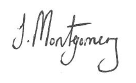 J. Montgomery